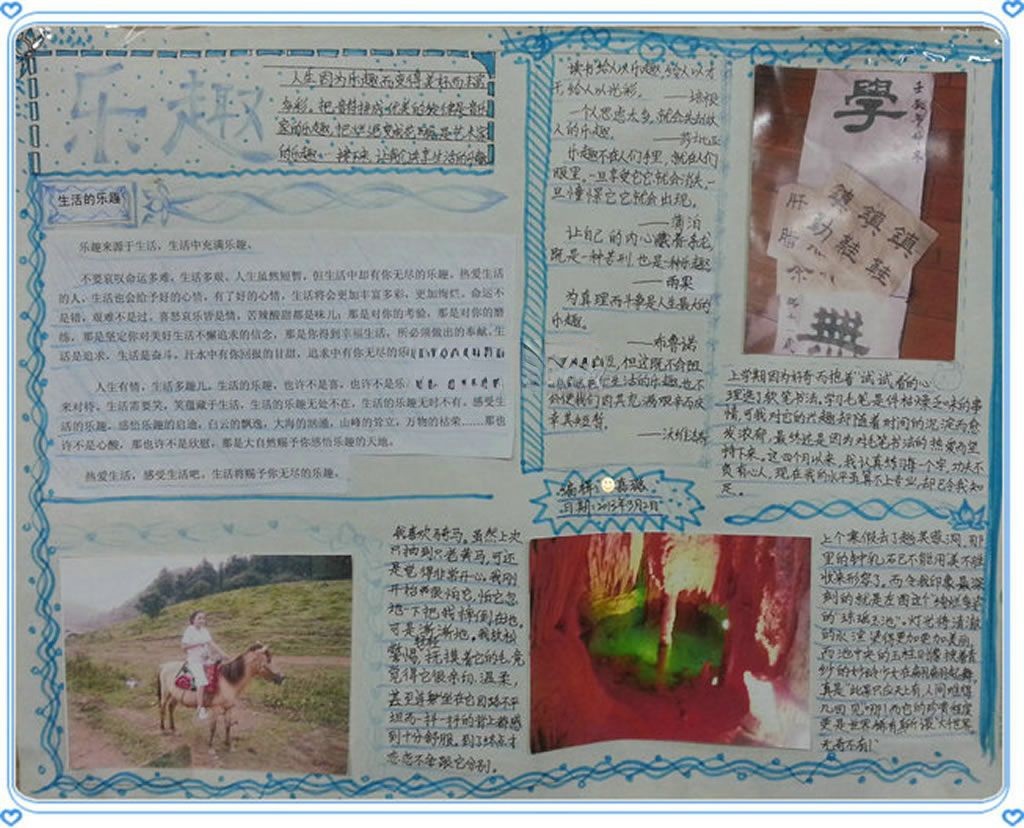 乐趣
人生因为乐趣而变得美好而丰富
多彩。把音符接成优美的旋律是音乐
家的乐趣,把
是艺术家
的乐趣。接下来,让我们共享生活的乐趣
生活的乐趣
乐趣来源于生活,生活中充满乐趣。
不要哀叹命运多难,生活多艰,人生虽然短暂,但生活中却有你无尽的乐趣。热爱生活
的人,生活也会给予好的心情,有了好的心情,生活将会更加丰富多彩,更加绚烂。命运不
是错,艰难不是过,喜怒哀乐皆是情,苦辣酸甜都是味儿;那是对你的考验,那是对你的磨
练,那是坚定你对美好生活不懈追求的信念,那是你得到幸福生活,所必须做出的奉献。生
活是追求,生活是奋斗,汗水中有你回报的甘甜,追求中有你无尽的乐
人生有情,生活多趣儿。生活的乐趣,也许不是喜,也许不是乐
来对待。生活需要笑,笑蕴藏于生活,生活的乐趣无处不在,生活的乐趣无时不有。感受生
活的乐趣,感悟乐趣的启迪,白云的飘逸,大海的汹涌,山峰的耸立,万物的枯荣……那也
许不是心酸,那也许不是欣慰,那是大自然赐予你感悟乐趣的天地。
热爱生活,感受生活吧,生活将赐予你无尽的乐趣。
读书给人以乐趣,给人以才
干,给人以光彩。——培根
一个人思虑太多,就会失去做
人的乐趣。
——莎士比亚
乐趣不在人们手里,就在人们
眼里。一旦享受它它就会消失,一
旦憧憬它它就会出现。
——蒲泊
让自己的内心藏着条龙,
既是一种苦刑,也是一种乐趣。
——雨果
为真理而斗争是人生最大的
乐趣。
——布鲁诺
但这既不会阻
生活的乐趣,也不
会使我们因其充满艰辛而庆
幸其短暂。
——沃维纳格
學
鎮 鎮 鎮
勁 鞋 鞋
肝
脂
無
上学期因为好奇而抱着"试试看的心
理选了软笔书法。学习毛笔是件枯燥乏味的事
情,可我对它的兴趣却随着时间的流淌而愈
发浓郁,最终还是因为对毛笔书法的热爱而坚
持下来。这四个月以来,我认真练习每一个字,功夫不
负有心人,现在我的水平虽算不上专业,却已令我知
足。
编辑:
日期:2013年3月2日
我喜欢骑马,虽然上次
只抽到只老黄马,可还
是觉得非常开心。我刚
开始很怕它,怕它忽
地一下把我摔倒在地。
可是渐渐地,我放松
警惕,抚摸着它的毛,竟
觉得它很亲切、温柔,
甚至连坐在它因路不平
坦而一抖一抖的背上都感
到十分舒服。到了终点才
恋恋不舍跟它分别。
上个寒假去了趟芙蓉洞,那
里的钟乳石已不能用美不胜
收来形容了,而令我印象最深
刻的就是左图这个绚烂多彩
的"珠瑙玉池"。灯光将清澈
的水渲染得更加更加美丽,
而池中央的玉柱
真是"此景只应天上有,人间难得
几回见"啊!而它的珍贵程度
更是世界稀有,所谓"大世界,
无奇不有!"